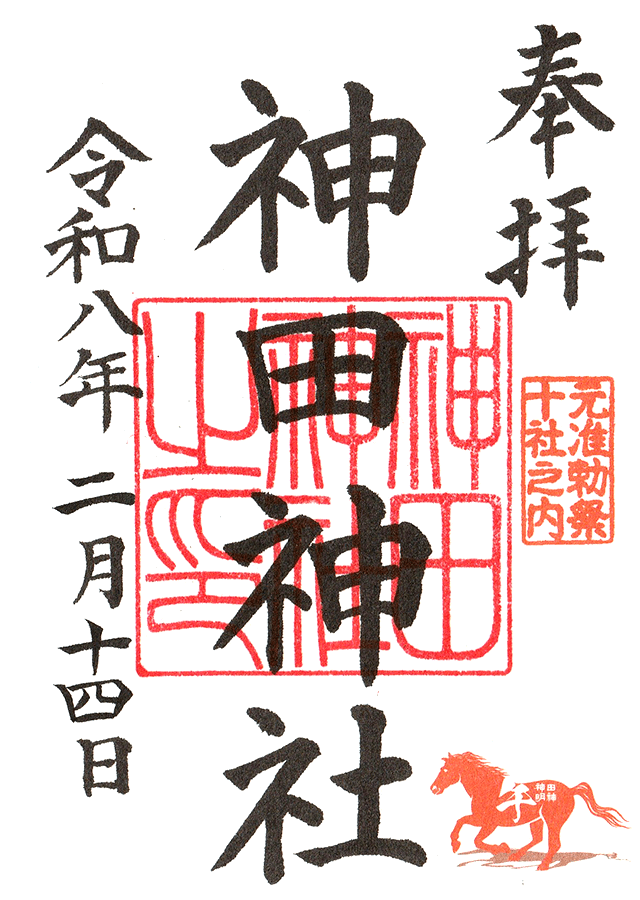 奉拝
元准勅祭
十社之内
神田神社
神田
神社
之印
令和八年二月十四日
午
神田
明神